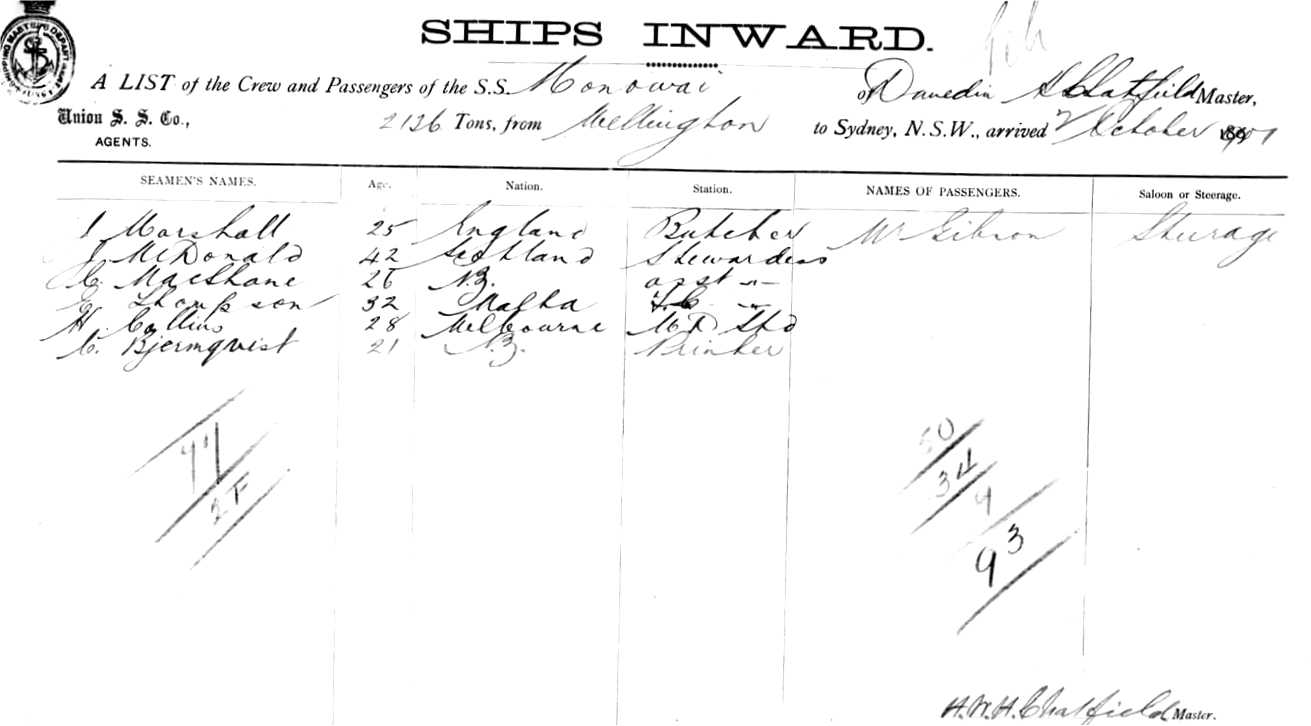 SHIPS INWARD.
A LIST of the Crew and Passengers of the S.S. Monowai of Dunedin H Chatfield Master,
Union S. S. Co., 2126 Tons, from Wellington to Sydney, N.S.W., arrived October
AGENTS.
SEAMEN'S NAMES. Age. Nation. Station. NAMES OF PASSENGERS. Saloon or Steerage.
Marshall 25 England Butcher Mr Gibson Steerage
J McDonald 42 Scotland Stewardess
C. MacShane 26 N.Z. asst -"-
E Thompson 32 Malta -"-
H Collins 28 Melbourne Std
C. Bjermqvist 21 N.Z. Printer
50
34
9
93
2 F
H.W.H. Chatfield Master.